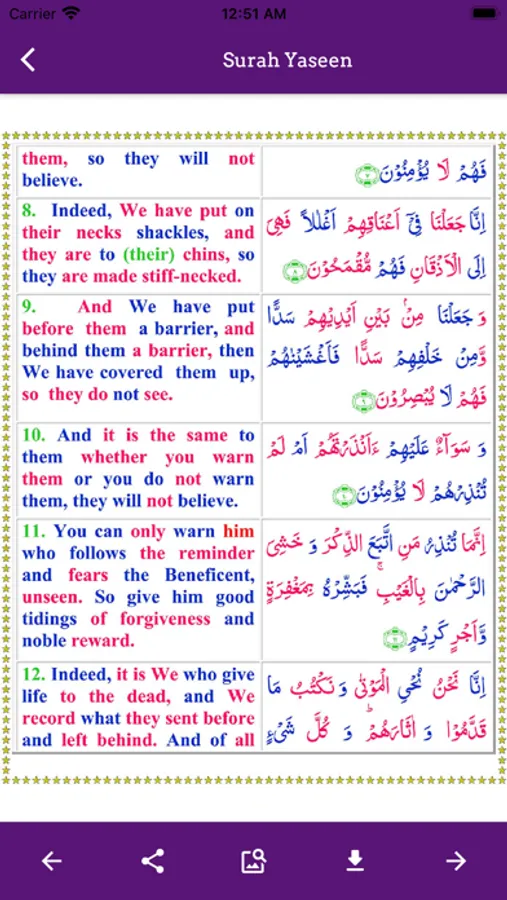 Carrier 12:51 AM
Surah Yaseen
them, so they will not
believe.
فَهُمْ لَا يُؤْمِنُوْنَ ﴿۷﴾
8. Indeed, We have put on
their necks shackles, and
they are to (their) chins, so
they are made stiff-necked.
اِنَّا جَعَلْنَا فِيْٓ اَعْنَاقِهِمْ اَغْلٰلًا فَهِيَ
اِلَى الْاَذْقَانِ فَهُمْ مُّقْمَحُوْنَ ﴿۸﴾
9. And We have put
before them a barrier, and
behind them a barrier, then
We have covered them up,
so they do not see.
وَ جَعَلْنَا مِنْۢ بَيْنِ اَيْدِيْهِمْ سَدًّا
وَّمِنْ خَلْفِهِمْ سَدًّا فَاَغْشَيْنٰهُمْ
فَهُمْ لَا يُبْصِرُوْنَ ﴿۹﴾
10. And it is the same to
them whether you warn
them or you do not warn
them, they will not believe.
وَ سَوَآءٌ عَلَيْهِمْ ءَاَنْذَرْتَهُمْ اَمْ لَمْ
تُنْذِرْهُمْ لَا يُؤْمِنُوْنَ ﴿۱۰﴾
11. You can only warn him
who follows the reminder
and fears the Beneficent,
unseen. So give him good
tidings of forgiveness and
noble reward.
اِنَّمَا تُنْذِرُ مَنِ اتَّبَعَ الذِّكْرَ وَ خَشِيَ
الرَّحْمٰنَ بِالْغَيْبِ ۚ فَبَشِّرْهُ بِمَغْفِرَةٍ
وَّاَجْرٍ كَرِيْمٍ ﴿۱۱﴾
12. Indeed, it is We who give
life to the dead, and We
record what they sent before
and left behind. And of all
اِنَّا نَحْنُ نُحْيِ الْمَوْتٰى وَ نَكْتُبُ مَا
قَدَّمُوْا وَ اٰثَارَهُمْ ؕ وَ كُلَّ شَيْءٍ